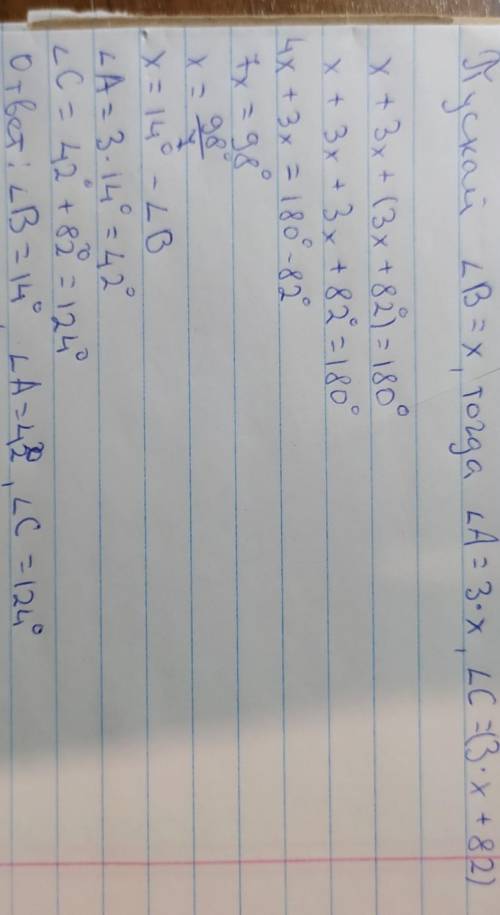 Пускай ∠B = x, тогда ∠A = 3·x, ∠C = (3·x + 82)
x + 3x + (3x + 82°) = 180°
x + 3x + 3x + 82° = 180°
4x + 3x = 180° - 82°
7x = 98°
x = 98°/7
x = 14° - ∠B
∠A = 3·14° = 42°
∠C = 42° + 82° = 124°
Ответ: ∠B = 14°, ∠A = 42°, ∠C = 124°